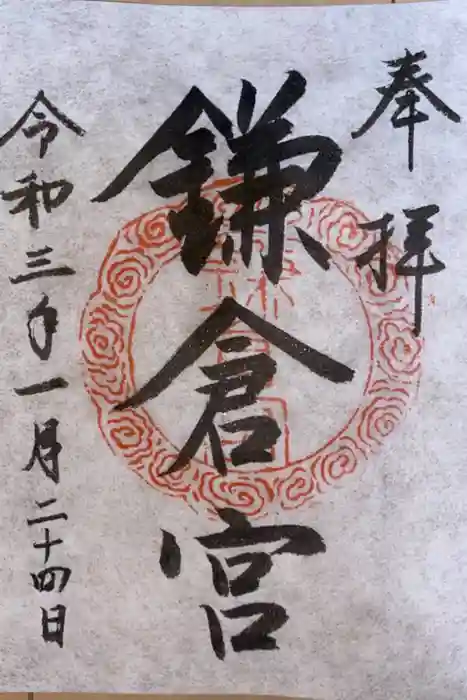 奉拝
鎌倉宮
令和三年一月二十四日